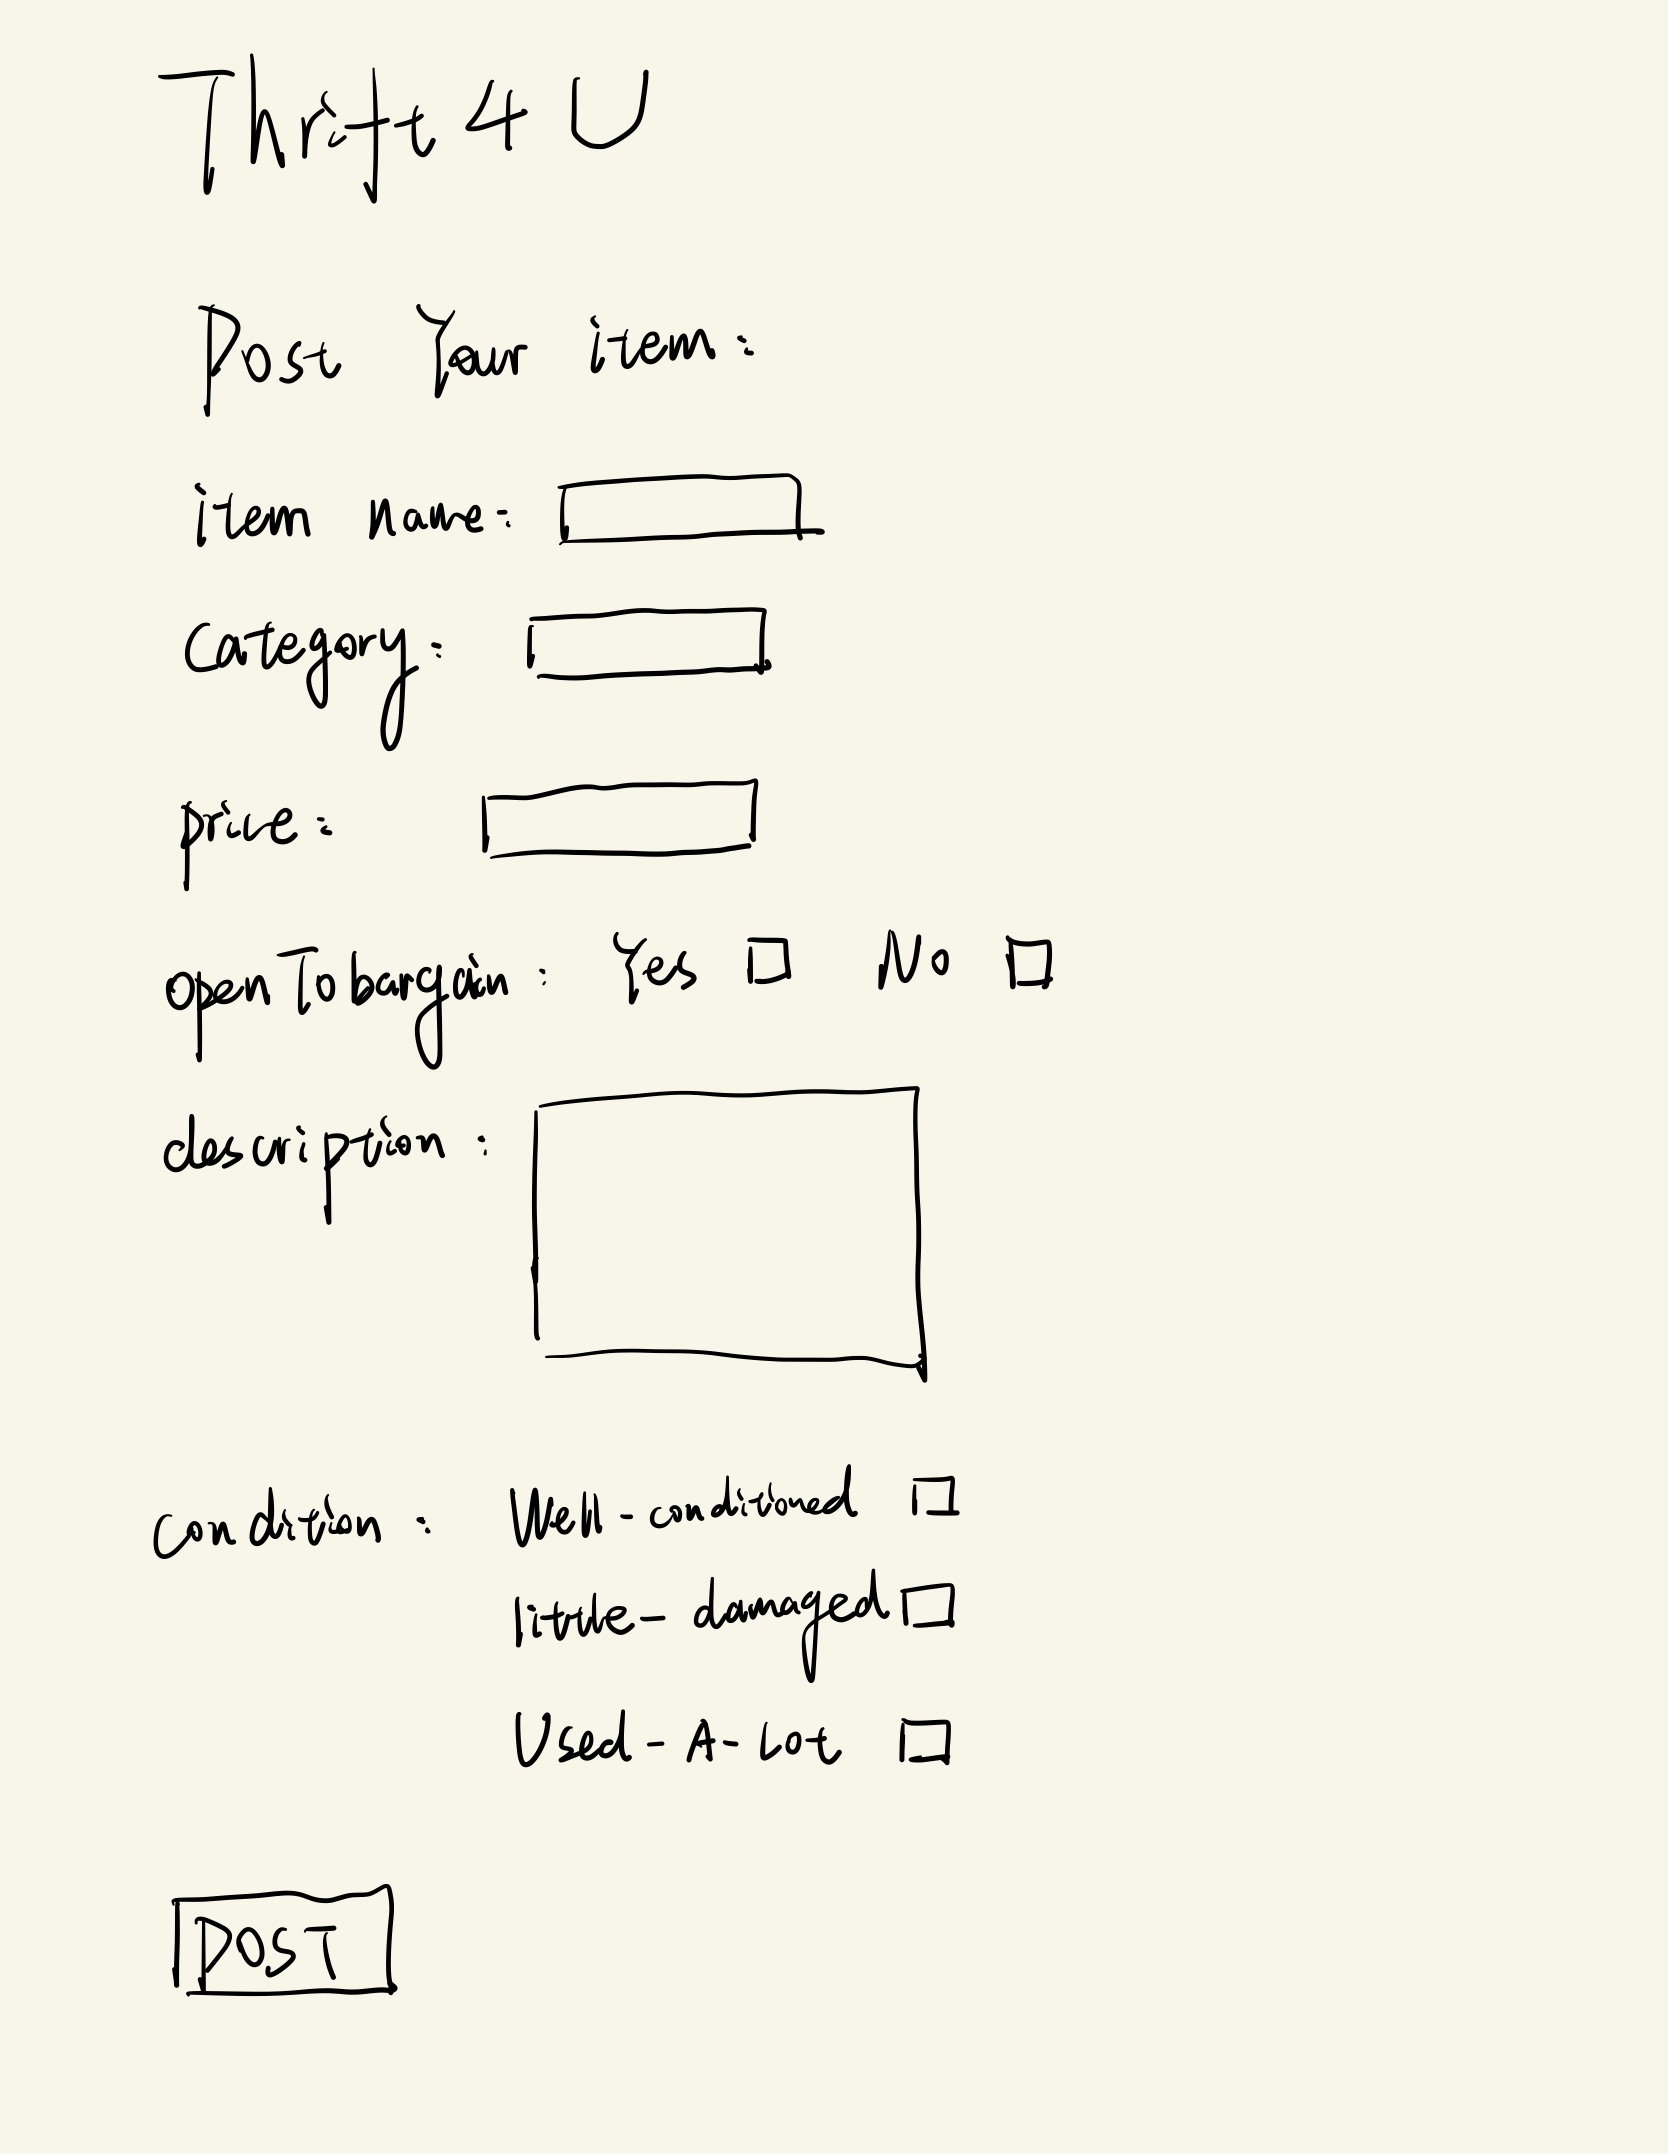 Thrift 4 U
Post Your item:
item name:
Category:
price:
openTobargain: Yes No
description:
Condition: Well-conditioned
little-damaged
Used-A-Lot
POST